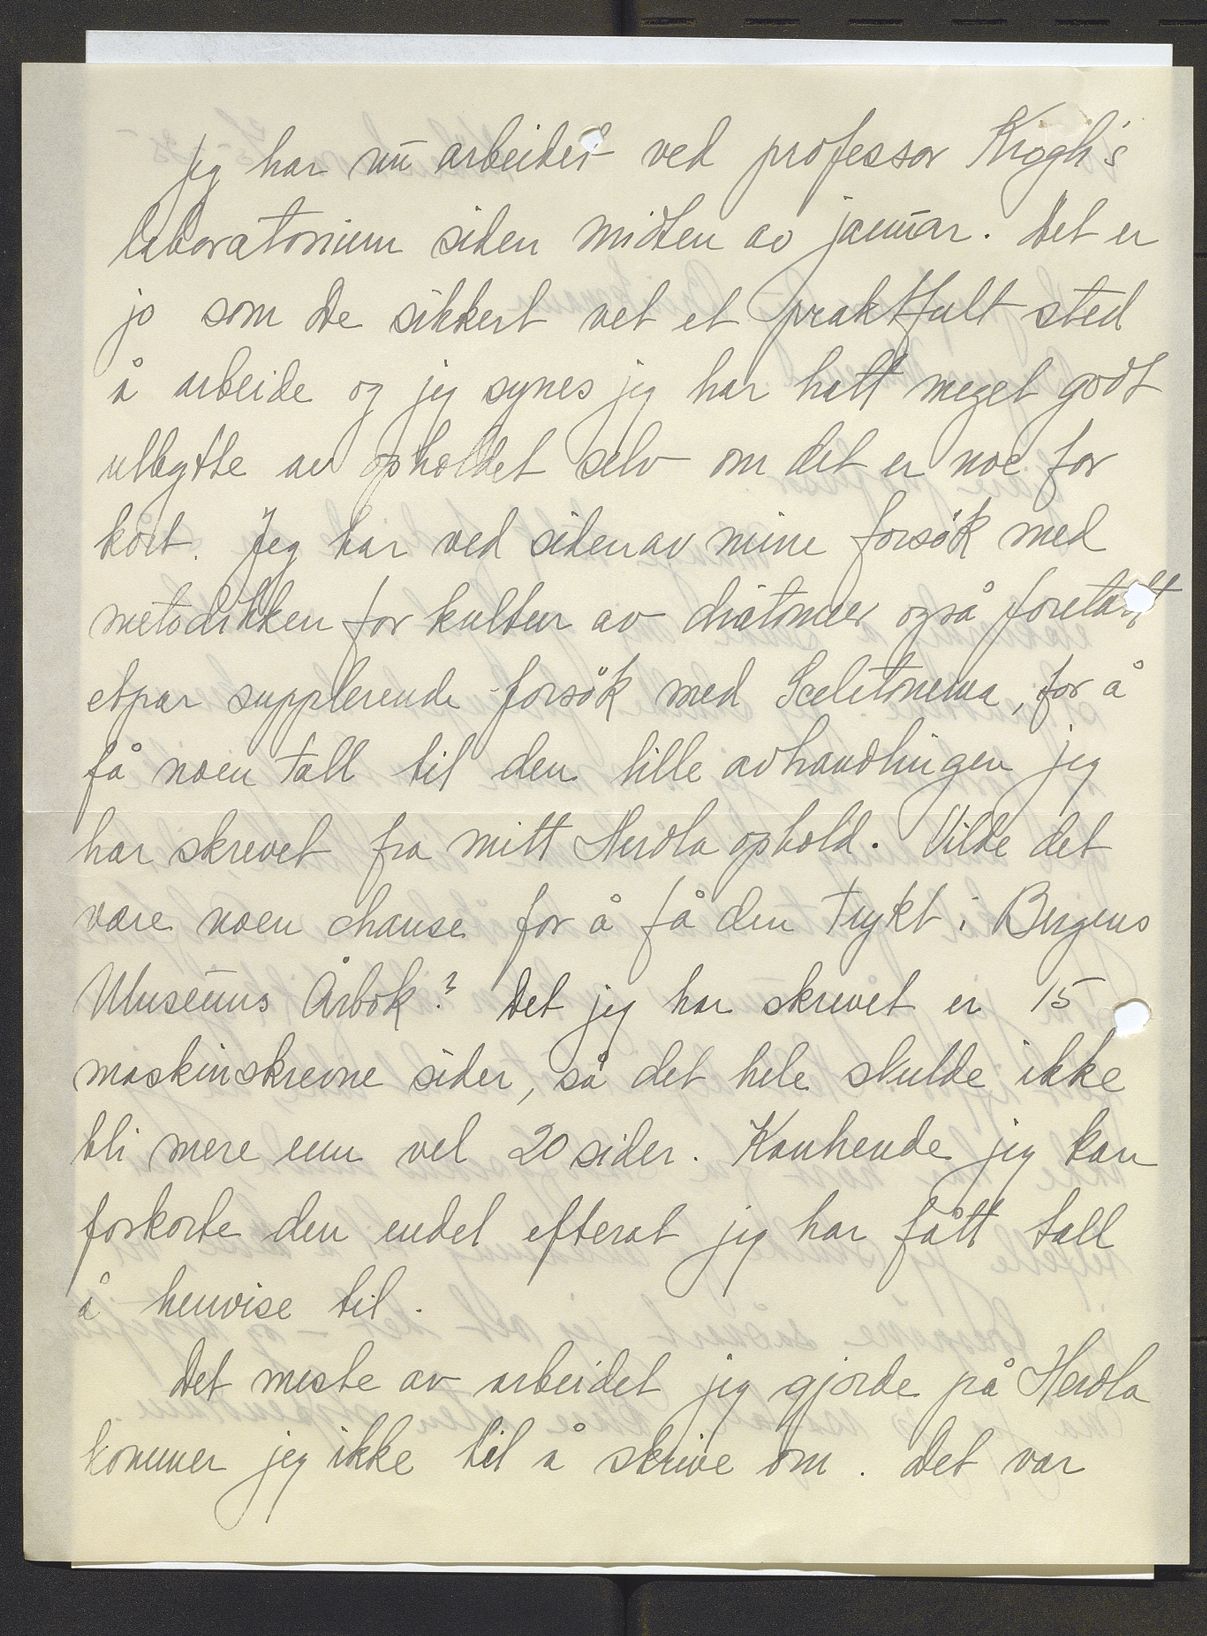 Jeg har nu arbeidet ved professor Krogh's
laboratorium siden midten av januar. Det er
jo som De sikkert vet et praktfult sted
å arbeide og jeg synes jeg har hatt meget godt
utbytte av opholdet selv om det er noe for
kort. Jeg har ved siden av mine forsök med
metodikken for kultur av diatomeer også foretatt
etpar supplerende forsök med Sceletonema, for å
få noen tall til den lille avhandlingen jeg
har skrevet fra mitt Herdla ophold. Vilde det
være noen chanse for å få den trykt i Bergens
Museums Årbok? Det jeg har skrevet er 15
maskinskrevne sider, så det hele skulde ikke
bli mere enn vel 20 sider. Kanhende jeg kan
forkorte den endel efterat jeg har fått tall
å henvise til.
Det meste av arbeidet jeg gjorde på Herdla
kommer jeg ikke til å skrive om. Det var